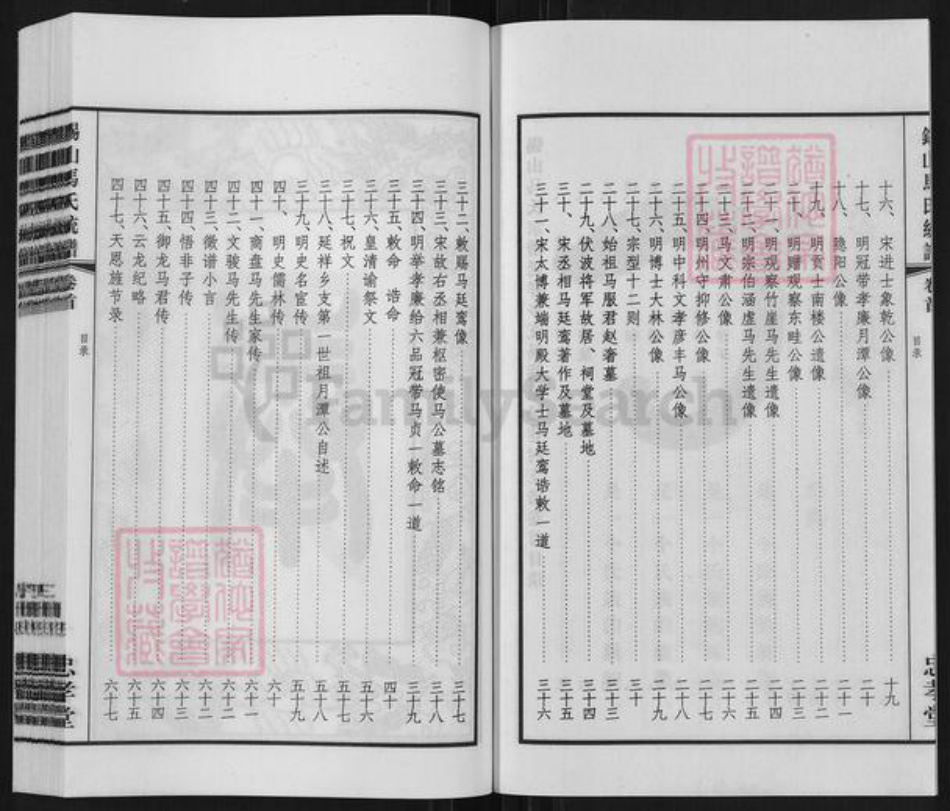 目录
十六、宋进士象乾公像 十九
十七、明冠带孝廉月潭公像 二十
十八、隐阳公像 二十一
十九、明贡士南楼公遗像 二十二
二十、明赠观察东畦公像 二十三
二十一、明观察竹崖马先生遗像 二十四
二十二、明宗伯涵虚马先生遗像 二十五
二十三、马文肃公像 二十六
二十四、明州守抑修公像 二十七
二十五、明中科文孝彦丰马公像 二十八
二十六、明博士大林公像 二十九
二十七、宗型十二则 三十
二十八、始祖马服君赵奢墓 三十三
二十九、伏波将军故居、祠堂及墓地 三十四
三十、宋丞相马廷鸾著作及墓地 三十五
三十一、宋太博兼端明殿大学士马廷鸾诰敕一道 三十六
忠孝堂
锡山馬氏統譜 卷首
目录
三十二、敕赐马廷鸾像 三十七
三十三、宋故右丞相兼枢密使马公墓志铭 三十八
三十四、明举孝廉给六品冠带马贞一敕命一道 三十九
三十五、敕命 诰命 四十
三十六、皇清谕祭文 五十六
三十七、祝文 五十七
三十八、延祥乡支第一世祖月潭公自述 五十八
三十九、明史名宦传 五十九
四十、明史儒林传 六十
四十一、商盘马先生家传 六十一
四十二、文骏马先生传 六十二
四十三、徵谱小言 六十二
四十四、悟非子传 六十三
四十五、御龙马君传 六十四
四十六、云龙纪略 六十五
四十七、天恩旌节录 六十七
忠孝堂
FamilySearch